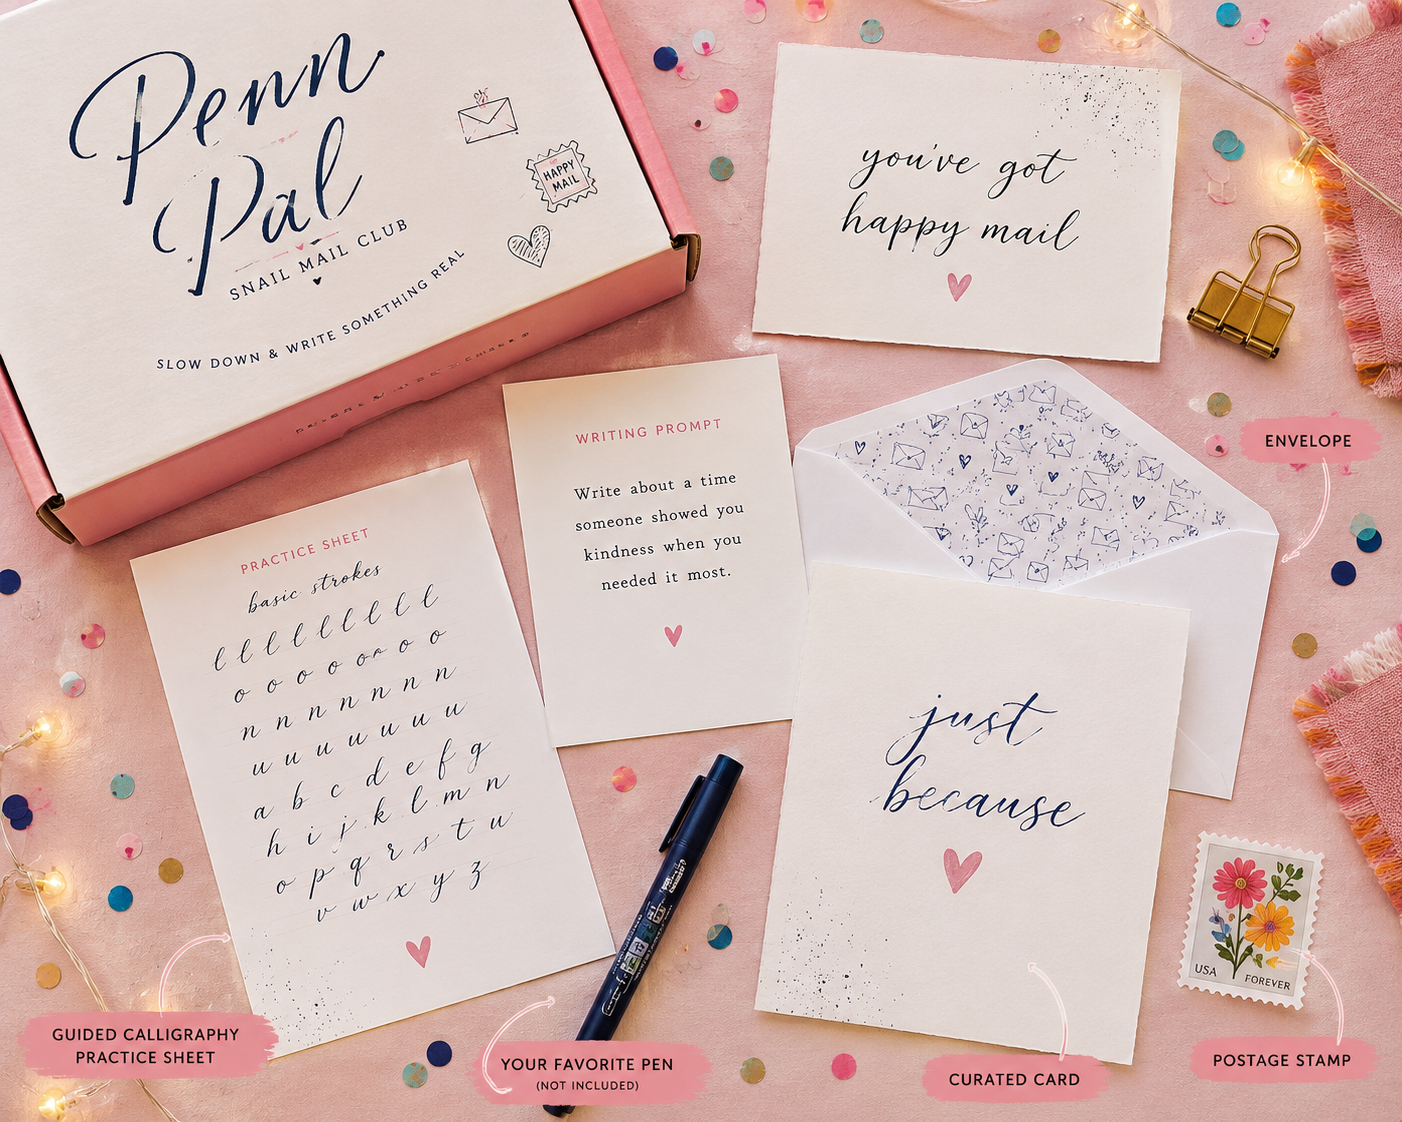 Penn
Pal
SNAIL MAIL CLUB
SLOW DOWN & WRITE SOMETHING REAL
HAPPY
MAIL
you've got
happy mail
WRITING PROMPT
Write about a time
someone showed you
kindness when you
needed it most.
PRACTICE SHEET
basic strokes
l l l l l l l l l
o o o o or o o
n n n n n n n
u u u u u u u
a b c d e f g
h i j k l m n
o p q r s t u
v w x y z
just
because
ENVELOPE
USA
FOREVER
GUIDED CALLIGRAPHY
PRACTICE SHEET
YOUR FAVORITE PEN
(NOT INCLUDED)
CURATED CARD
POSTAGE STAMP